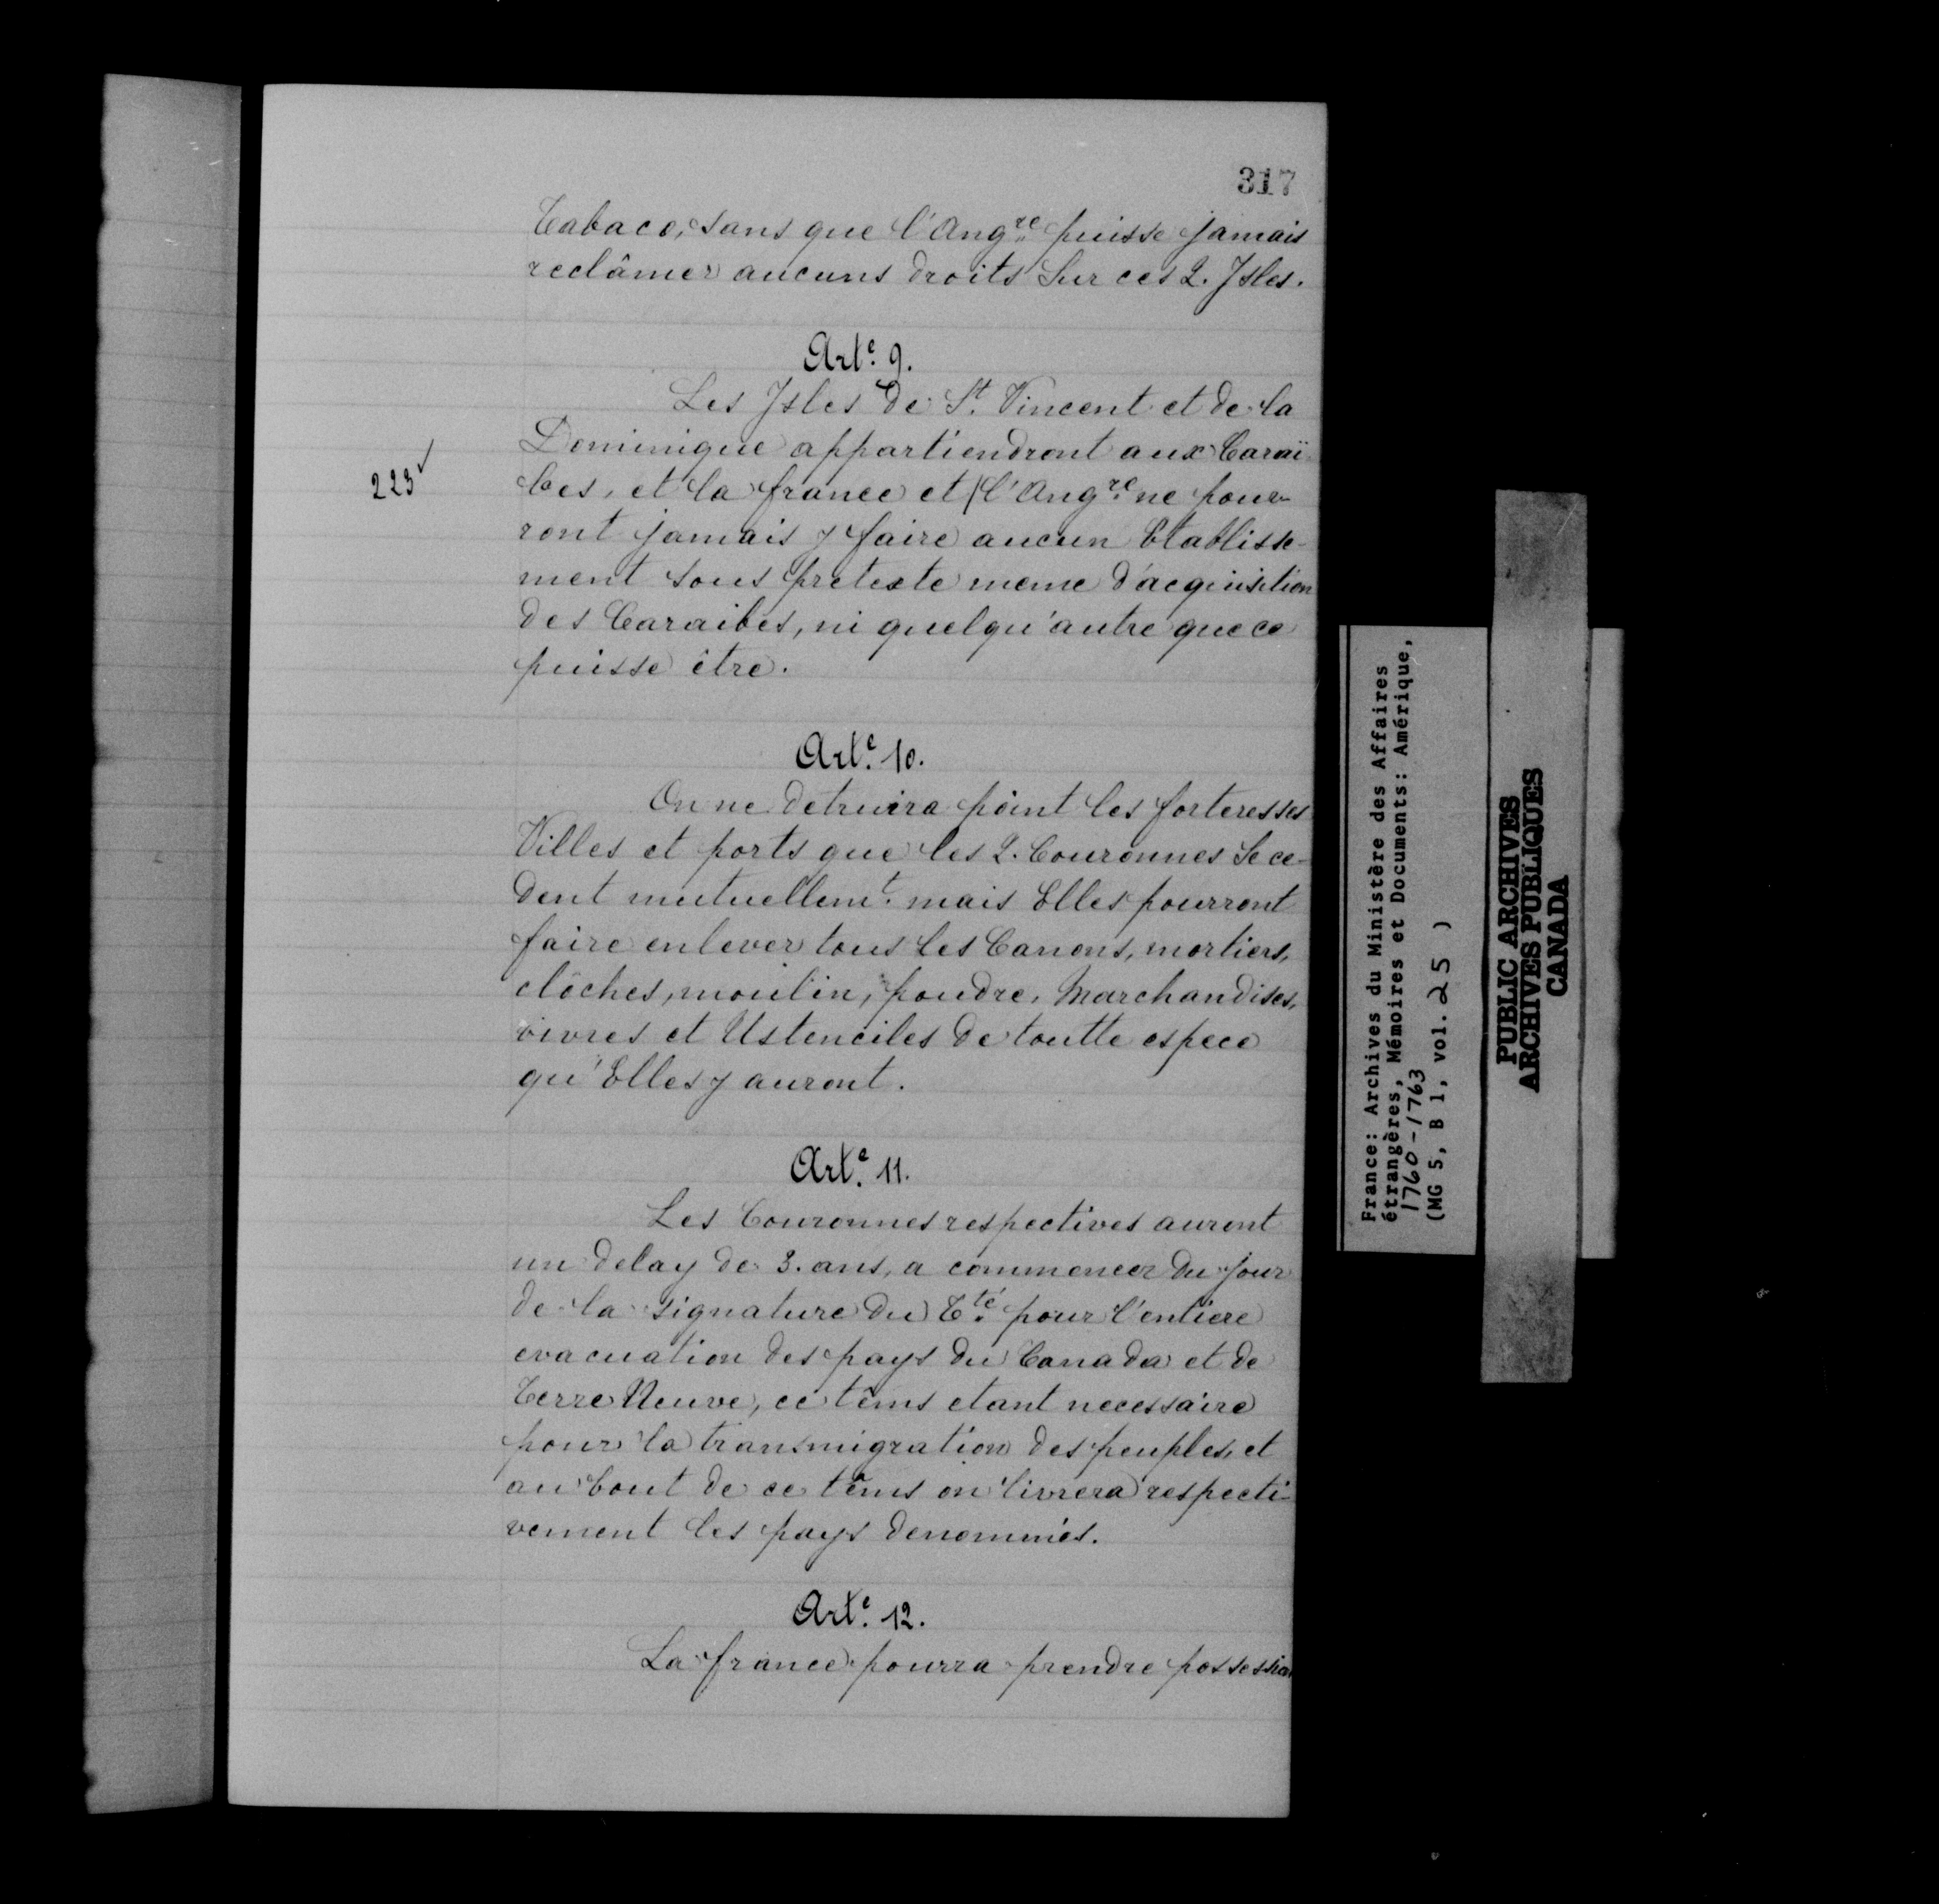 317
Tabaco, sans que l'Angre puisse jamais
reclâmer aucuns droits Sur ces 2. Isles.
Arte. 9.
Les Isles de St. Vincent et de la
Dominique appartiendront aux Caraï-
223✓
bes, et la france et /l'Angre ne pour-
ront jamais y faire aucun Etablisse-
ment sous pretexte meme d'acquisition
des Caraibes, ni quelqu'autre que ce
puisse être.
Arte. 10.
On ne detruira point les forteresses
Villes et ports que les 2. Couronnes Se ce-
dent mutuellemt. mais Elles pourront
faire enlever tous les Canons, mortiers,
clôches, moulin, poudre, Marchandises,
vivres et Ustenciles de toutte espece
qu'Elles y auront.
Arte. 11.
Les Couronnes respectives auront
un delay de 3. ans, a commencer du jour
de la signature du Tté pour l'entiere
evacuation des pays du Canada et de
Terre Neuve, ce têms etant necessaire
pour la transmigration des peuples, et
au bout de ce têms on livrera respecti-
vement les pays denommés.
Arte. 12.
La france pourra prendre possession
France: Archives du Ministère des Affaires
étrangères, Mémoires et Documents: Amérique,
1760-1763
(MG 5, B 1, vol. 25 )
PUBLIC ARCHIVES
ARCHIVES PUBLIQUES
CANADA